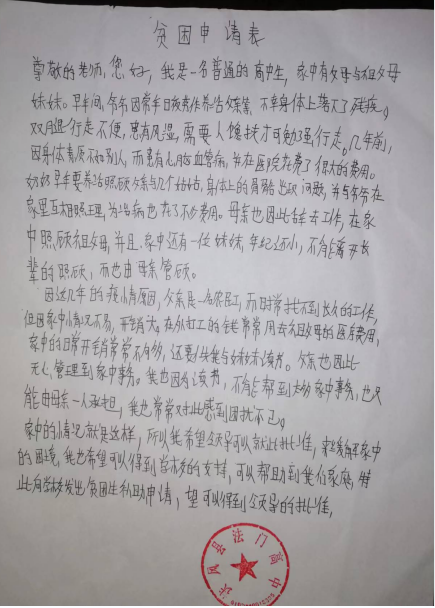 贫困申请表
尊敬的老师,您好,我是一名普通的高中生,家中有父母与祖父母
妹妹。早年间,爷爷因常年日夜劳作养活父亲等,不幸身体上落下了残疾。
双腿行走不便,患有风湿,需要人搀扶才可勉强行走。几年前,
因身体素质不如别人,而患有心脑血管病,并在医院花费了很大的费用。
奶奶早年要养活照顾父亲与几个姑姑,身体上的骨骼出现问题,并与爷爷在
家里互相照理,为治病也花了不少费用。母亲也因此辞去工作,在家
中照顾祖父母,并且家中还有一位妹妹,年纪还小,不能离开长
辈的照顾,而也由母亲管顾。
因这几年的疫情原因,父亲是一名农民工,而时常找不到长久的工作,
但因家中情况不易,开销大。在外打工的钱常常用去祖父母的医药费用,
家中的日常开销常常不够,还要供我与妹妹读书。父亲也因此
无心管理到家中事务。我也因为读书,不能帮到太多家中事务,也只
能由母亲一人承担,我也常常对此感到困扰不已。
家中的情况就是这样,所以我希望领导可以就此批准,来缓解家中
的困境,我也希望可以得到学校的支持,可以帮助到我们家庭,特
此向学校发出贫困生补助申请,望可以得到领导的批准,
扶风县法门高中